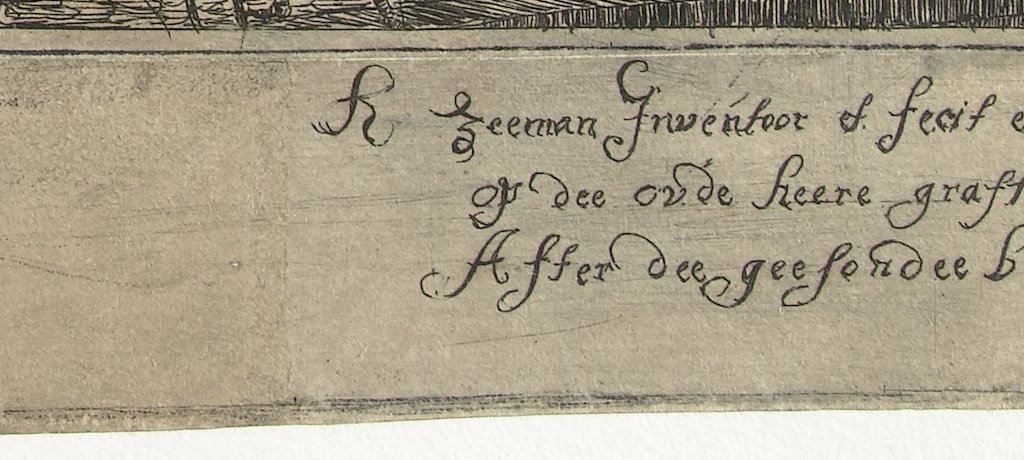 R Zeeman Inventoor et fecit e
op dee oude heere graft
Affter dee geesondee b